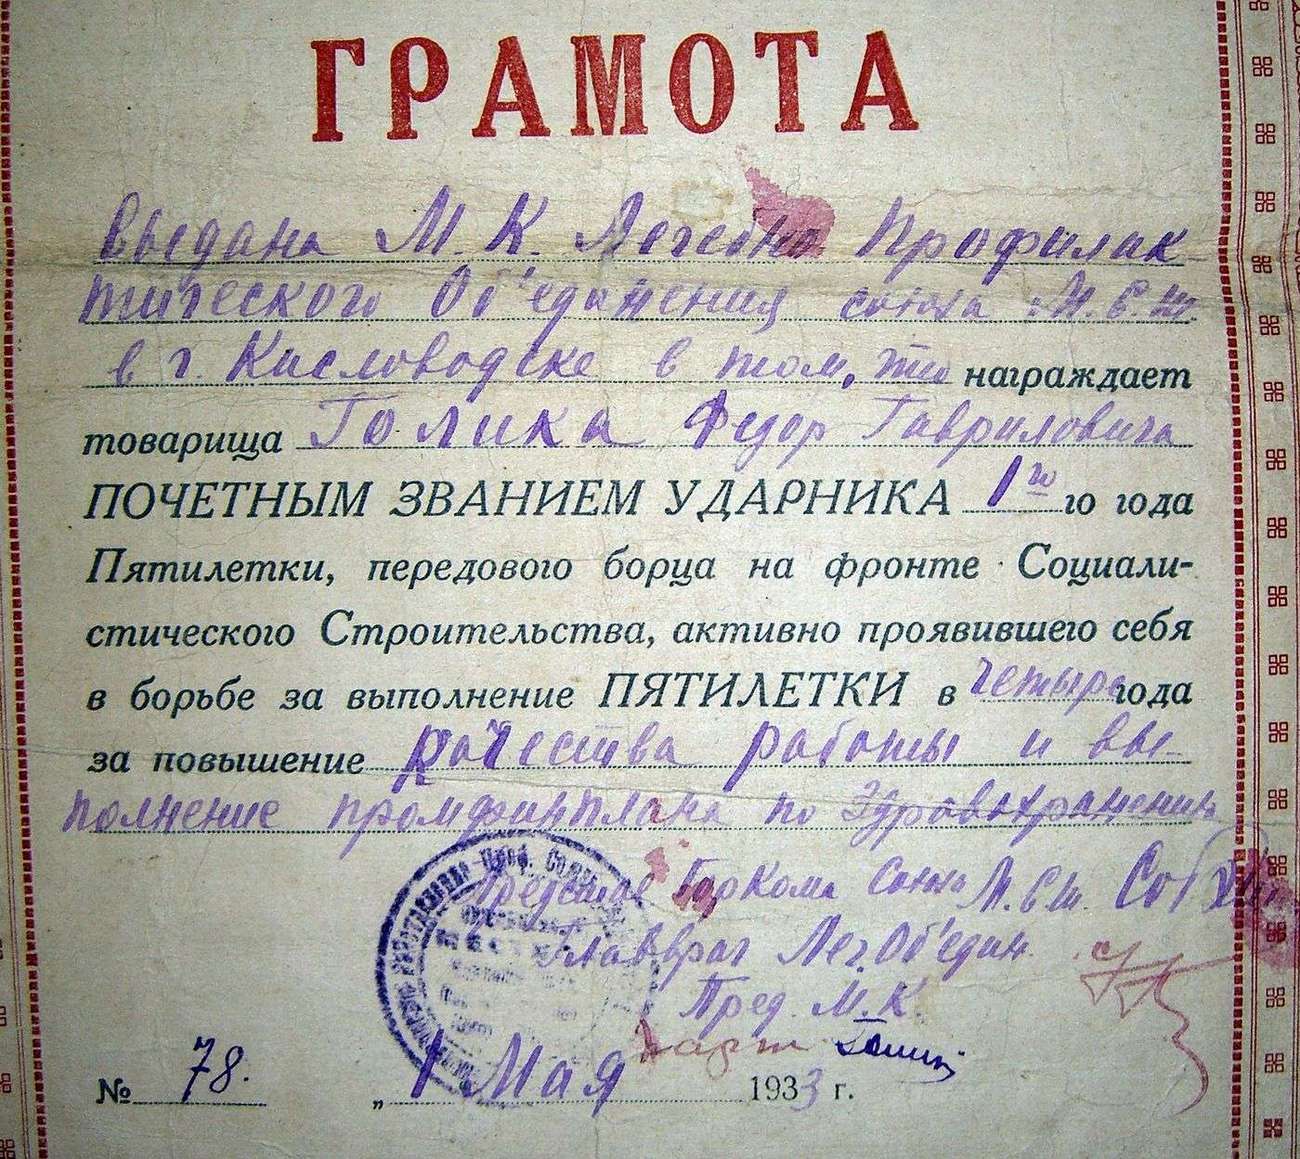 ГРАМОТА
Выдана М.К. Лечебно Профилак-
тического Об'единения союза М.С.Т.
в г. Кисловодске в том, что награждает
товарища Голика Федор Гавриловича
ПОЧЕТНЫМ ЗВАНИЕМ УДАРНИКА 1го го года
Пятилетки, передового борца на фронте Социали-
стического Строительства, активно проявившего себя
в борьбе за выполнение ПЯТИЛЕТКИ в четыре года
за повышение качества работы и вы-
полнение промфинплана по Здравохранению
Горкома Союза
Главврач Леч. Об'един.
Пред. М.К.
№ 78. „ 1 Мая 1933 г.